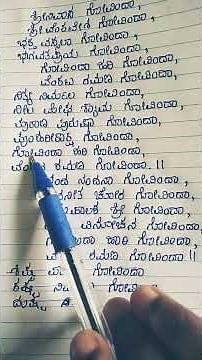 ಶ್ರೀನಿವಾಸ ಗೋವಿಂದಾ,
ಶ್ರೀ ವೆಂಕಟೇಶ ಗೋವಿಂದಾ,
ಭಕ್ತ ವತ್ಸಲಾ ಗೋವಿಂದಾ,
ಭಾಗವತಪ್ರಿಯ ಗೋವಿಂದಾ,
ಗೋವಿಂದಾ ಹರಿ ಗೋವಿಂದಾ,
ವೆಂಕಟ ರಮಣ ಗೋವಿಂದಾ,
ನಿತ್ಯ ನಿರ್ಮಲ ಗೋವಿಂದಾ,
ನೀಲ ಮೇಘ ಶ್ಯಾಮ ಗೋವಿಂದಾ,
ಪುರಾಣ ಪುರುಷಾ ಗೋವಿಂದಾ,
ಪುಂಡರೀಕಾಕ್ಷ ಗೋವಿಂದಾ,
ಗೋವಿಂದಾ ಹರಿ ಗೋವಿಂದಾ,
ರಮಣ ಗೋವಿಂದಾ.||
ನಂದನಾ ಗೋವಿಂದಾ,
ಚೋರ ಗೋವಿಂದಾ,
ಶ್ರೀ ಗೋವಿಂದಾ,
ವಿಮೋಚನ ಗೋವಿಂದಾ,
ಹರಿ ಗೋವಿಂದಾ,
ರಮಣ ಗೋವಿಂದಾ ||
ಗೋವಿಂದಾ
ಗೋವಿಂದಾ,